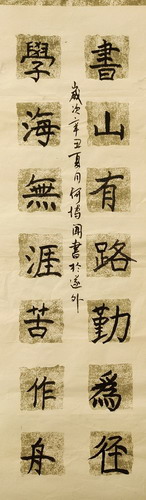 書山有路勤為径
學海無涯苦作舟
歲次辛丑夏月何博圖書於遂外